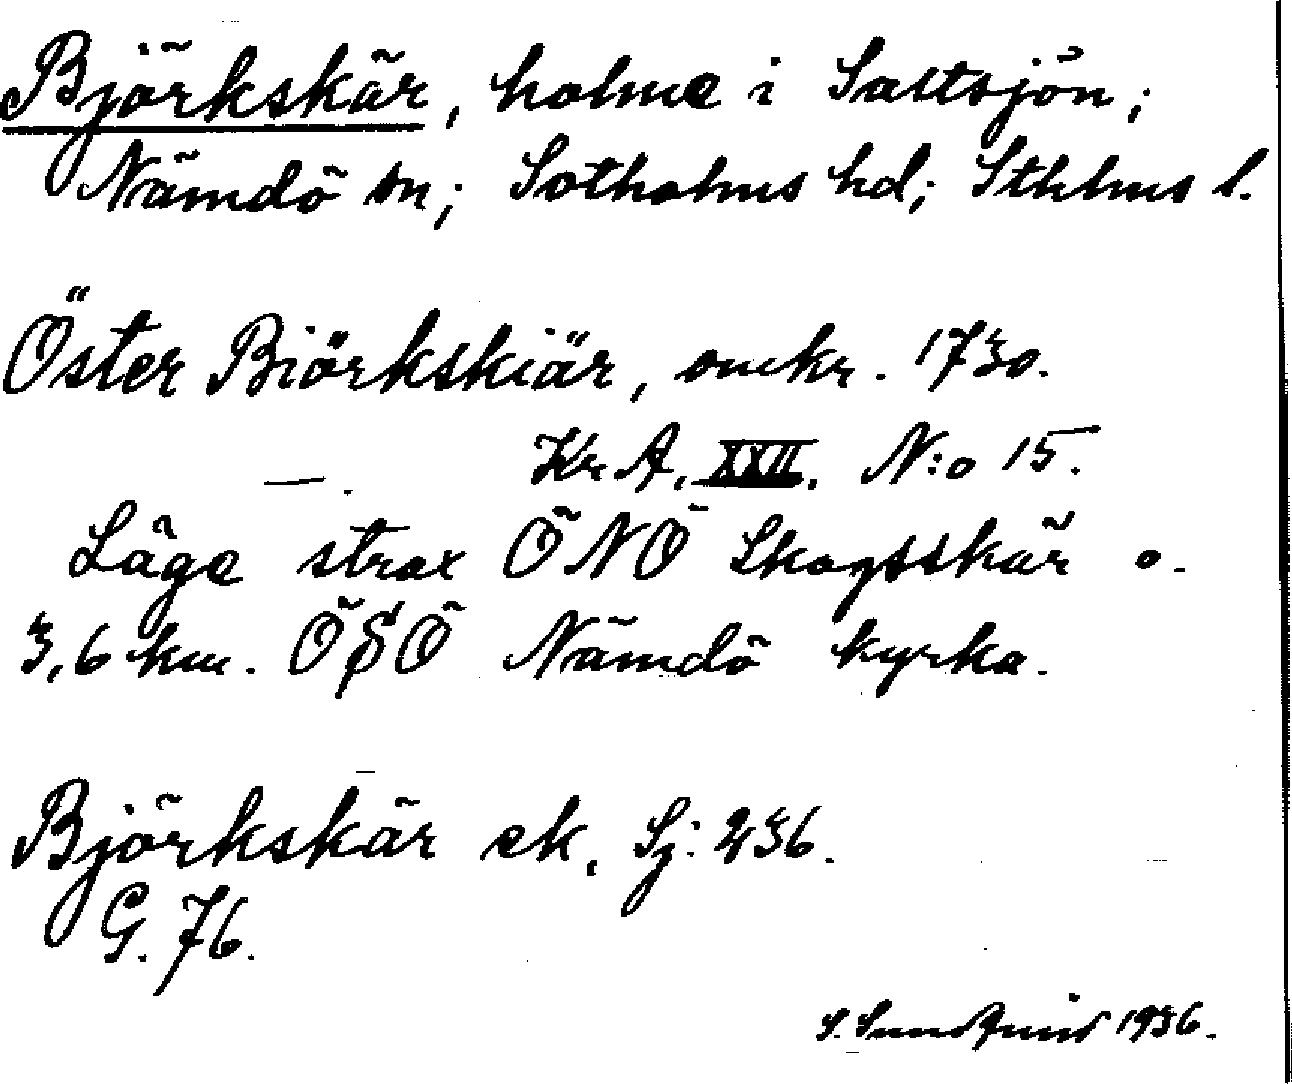 Björkskär, holme i Saltsjön;
Nämdö sn; Sotholms hd; Sthlms l.
Öster Biörkskiär, omkr. 1730.
Kr. A, XXII. N:o 15.
—.
Läge strax ÖNÖ Skogsskär o.
3,6 km. ÖSÖ Nämdö kyrka.
Björkskär ek. Sj: 236.
G. 76.
S. Sundqvist 1936.